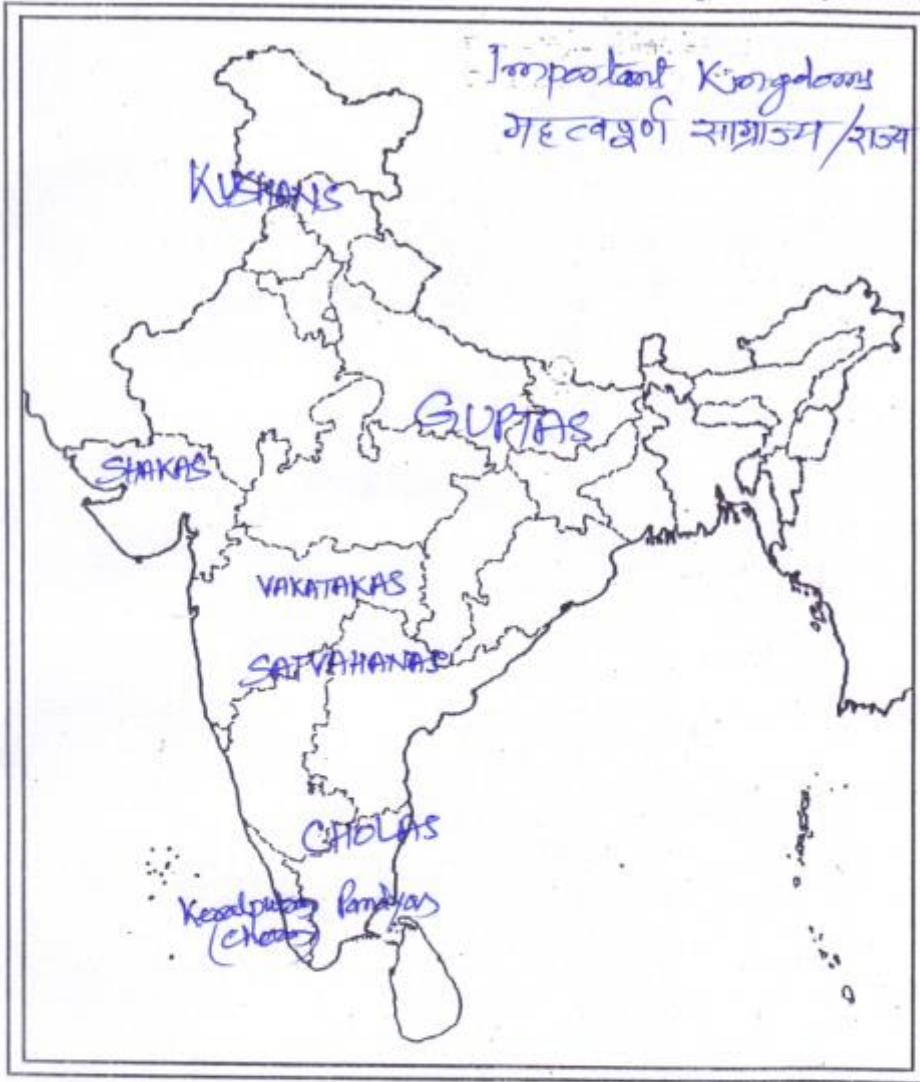 Important Kingdoms
महत्वपूर्ण साम्राज्य/राज्य
KUSHANS
GUPTAS
SHAKAS
VAKATAKAS
SATVAHANAS
CHOLAS
Keralputras Pandyas
(Cheras)